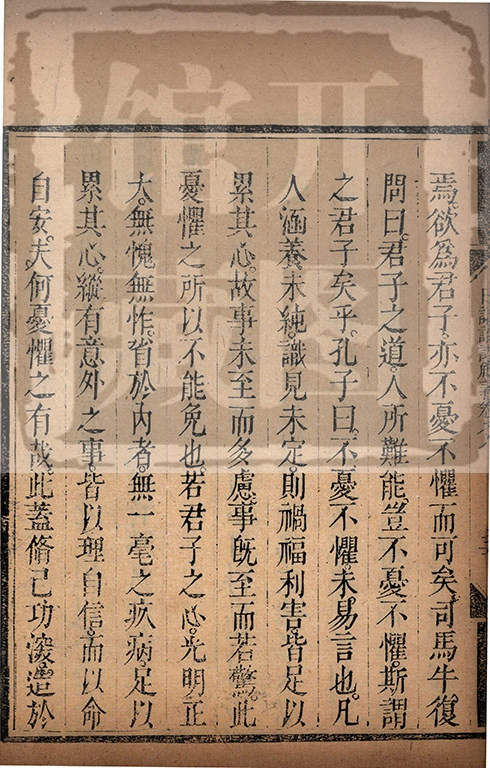 焉。欲為君子。亦不憂不懼而可矣。司馬牛復
問曰。君子之道。人所難能。豈不憂不懼。斯謂
之君子矣乎。孔子曰。不憂不懼。未易言也。凡
人涵養未純。識見未定。則禍福利害。皆足以
累其心。故事未至而多慮。事既至而若驚。此
憂懼之所以不能免也。若君子之心。光明正
大。無愧無怍。省於內者。無一毫之疚病。足以
累其心。縱有意外之事。皆以理自信。而以命
自安。夫何憂懼之有哉。此蓋脩己功深。造於